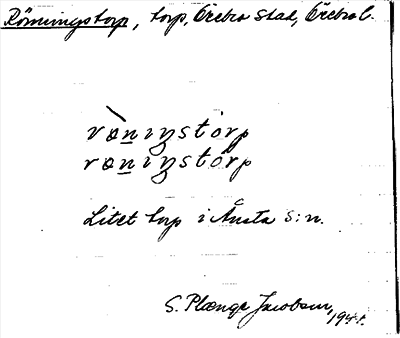 Rönningstorp, torp, Örebro stad, Örebro l.
rœnıŋstɔrp
rœnıŋstɔrp
Litet torp i Ånsta s:n.
S. Plænge Jacobson,